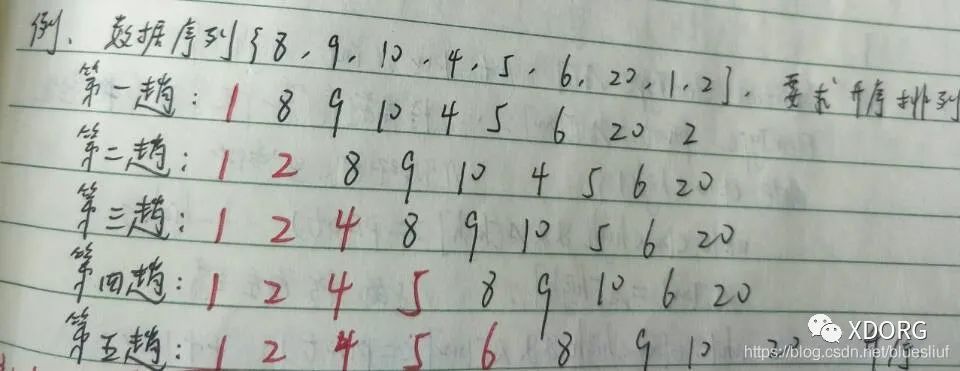 例、数据序列{8，9，10，4，5，6，20，1，2}，要求升序排列
第一趟：1 8 9 10 4 5 6 20 2
第二趟：1 2 8 9 10 4 5 6 20
第三趟：1 2 4 8 9 10 5 6 20
第四趟：1 2 4 5 8 9 10 6 20
第五趟：1 2 4 5 6 8 9 10 20
XDORG
https://blog.csdn.net/bluesliuf